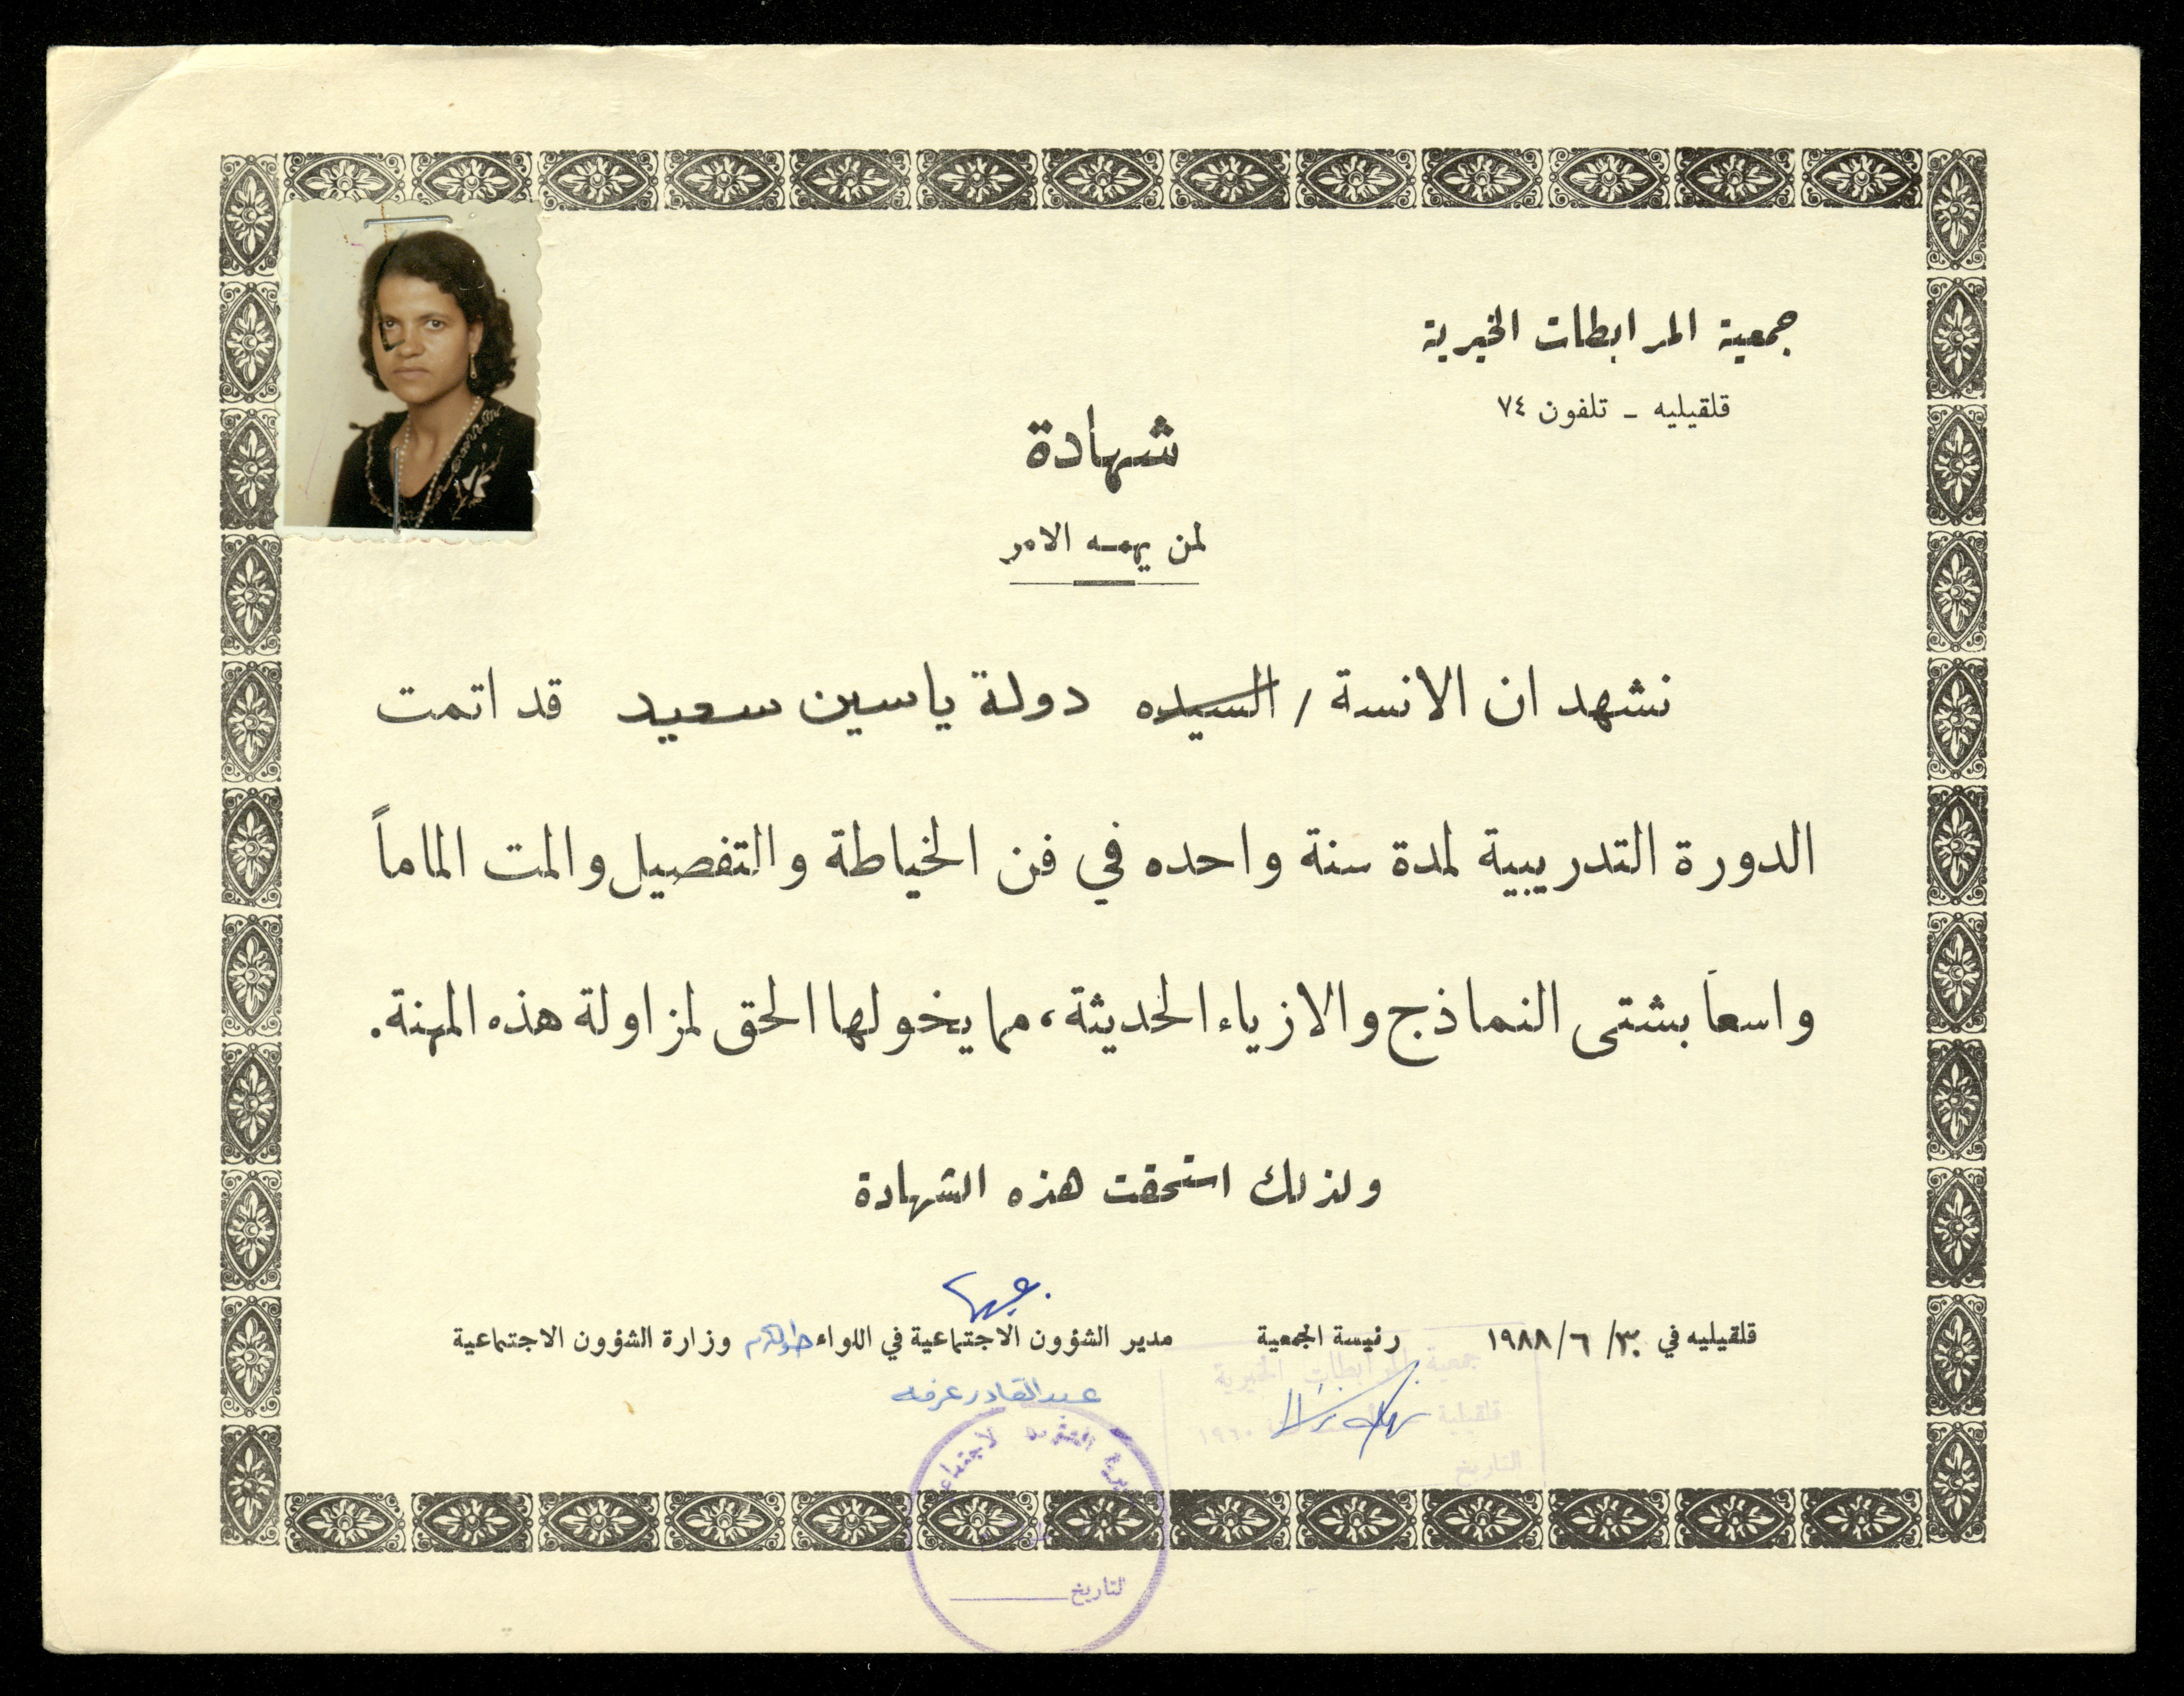 جمعية المرابطات الخيرية
قلقيليه - تلفون ٧٤
شهادة
لمن يهمه الامر
نشهد ان الانسة / السيده دولة ياسين سعيد قد اتمت
الدورة التدريبية لمدة سنة واحده في فن الخياطة والتفصيل والمت الماماً
واسعاً بشتى النماذج والازياء الحديثة، مما يخولها الحق لمزاولة هذه المهنة.
ولذلك استحقت هذه الشهادة
قلقيليه في ٣٠/ ٦/ ١٩٨٨
رئيسة الجمعية
مدير الشؤون الاجتماعية في اللواء طولكرم وزارة الشؤون الاجتماعية
عبدالقادر عرفه
جمعية المرابطات الخيرية
قلقيلية ١٩٦٠
التاريخ
مديرية الشؤون الاجتماعية
التاريخ